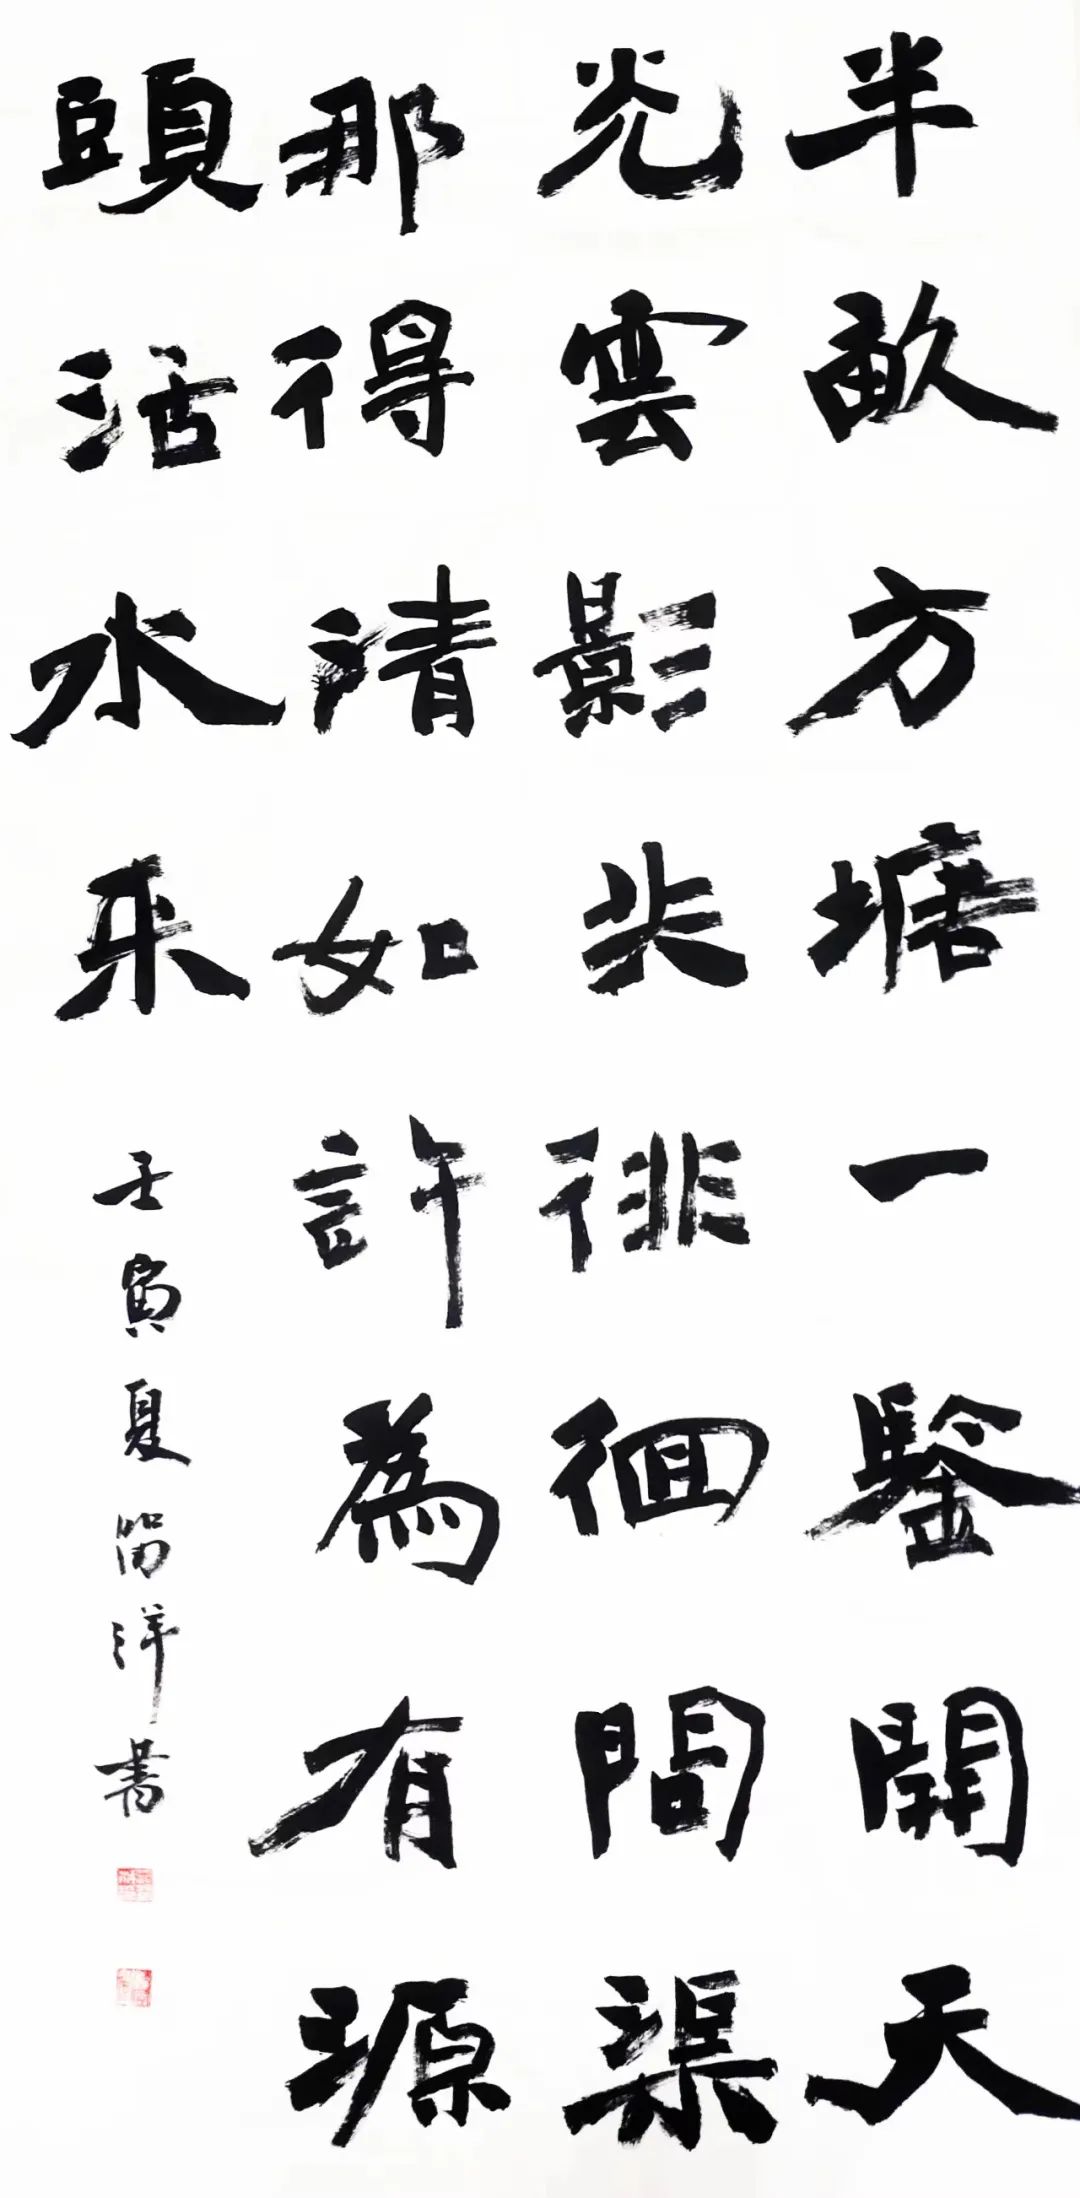 半畝方塘一鑒開天
光雲影共徘徊問渠
那得清如許為有源
頭活水来
壬寅夏洋書